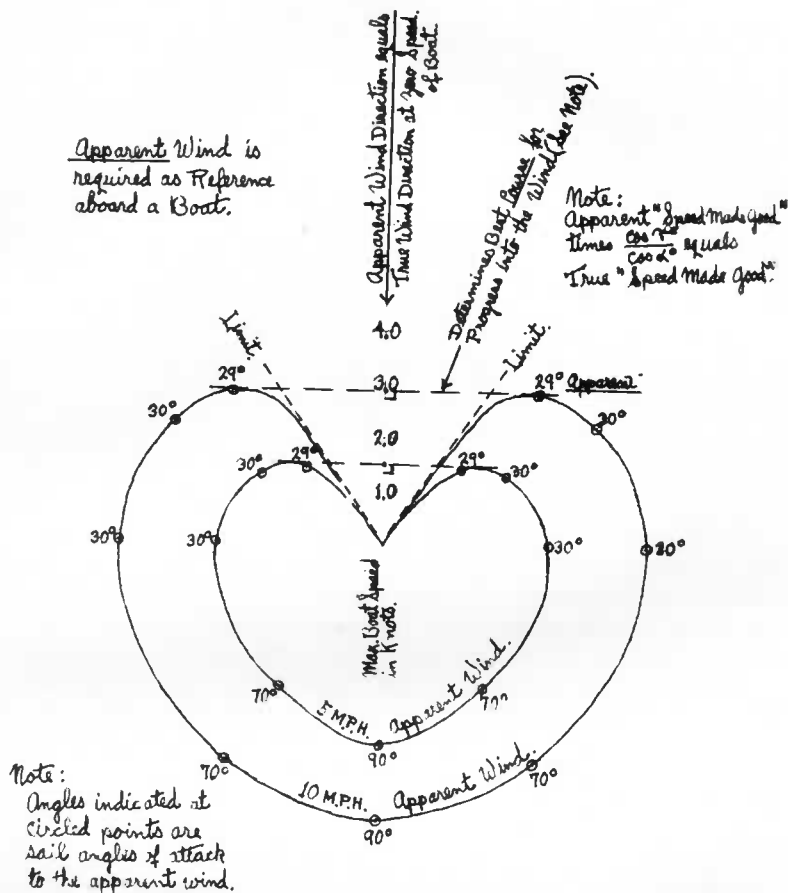 Apparent Wind Direction equals
True Wind Direction at zero Speed
of Boat.
Apparent Wind is
required as Reference
aboard a Boat.
Determines Best Course for
Progress into the Wind (See Note).
Note:
Apparent "Speed Made Good"
times cos γ° / cos α° equals
True "Speed Made Good".
Limit.
Limit.
4.0
3.0
2.0
1.0
29°
29° Apparent
30°
30°
29°
29°
30°
30°
30°
30°
30°
30°
Max. Boat Speed
in Knots.
70°
70°
5 M.P.H. Apparent Wind.
90°
70°
70°
10 M.P.H. Apparent Wind.
90°
Note:
Angles indicated at
circled points are
sail angles of attack
to the apparent wind.